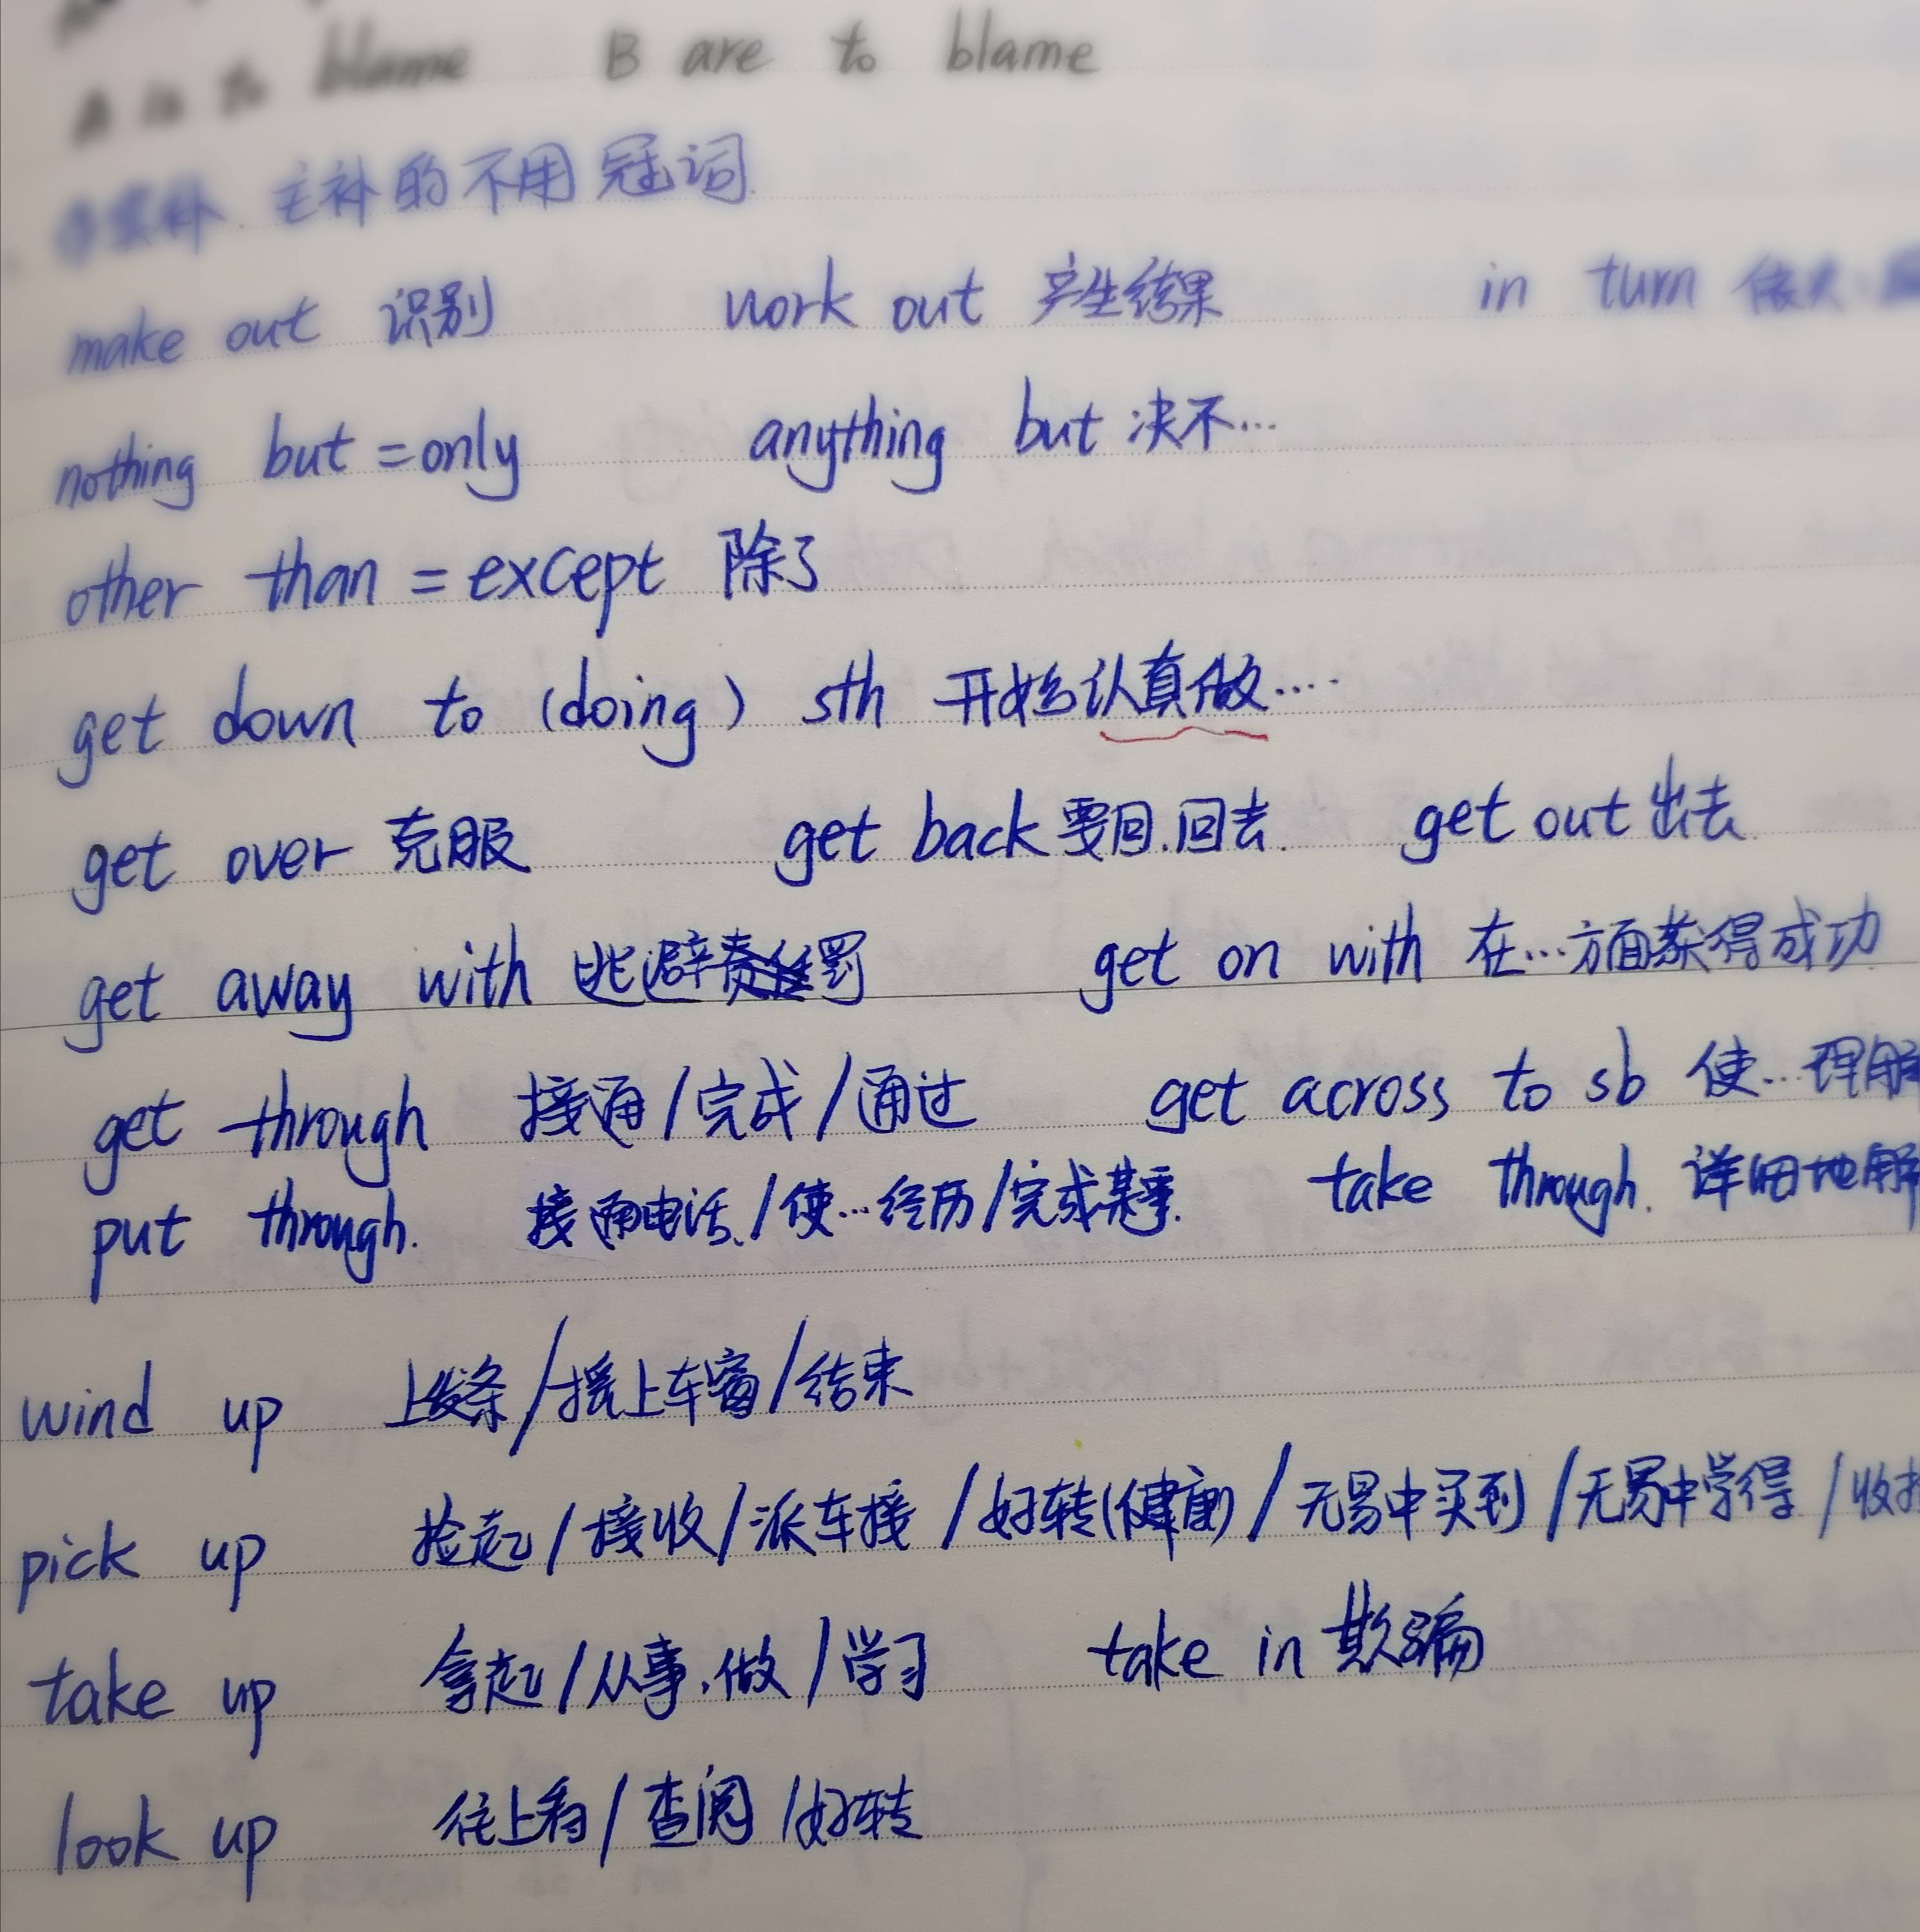 A is to blame B are to blame
主补的不用冠词
make out 识别 work out 产生结果 in turn 依次
nothing but = only anything but 决不…
other than = except 除了
get down to (doing) sth 开始认真做....
get over 克服 get back 要回.回去. get out 出去.
get away with 逃避罚 get on with 在…方面获得成功
get through 接通/完成/通过 get across to sb 使…理解
put through. 接通电话./使…经历/完成某事. take through. 详细地解
wind up 上发条/摇上车窗/结束
pick up 捡起/接收/派车接/好转(健康)/无易中买到/无易中学得/收
take up 拿起/从事.做/学习 take in 欺骗
look up 往上看/查阅/好转